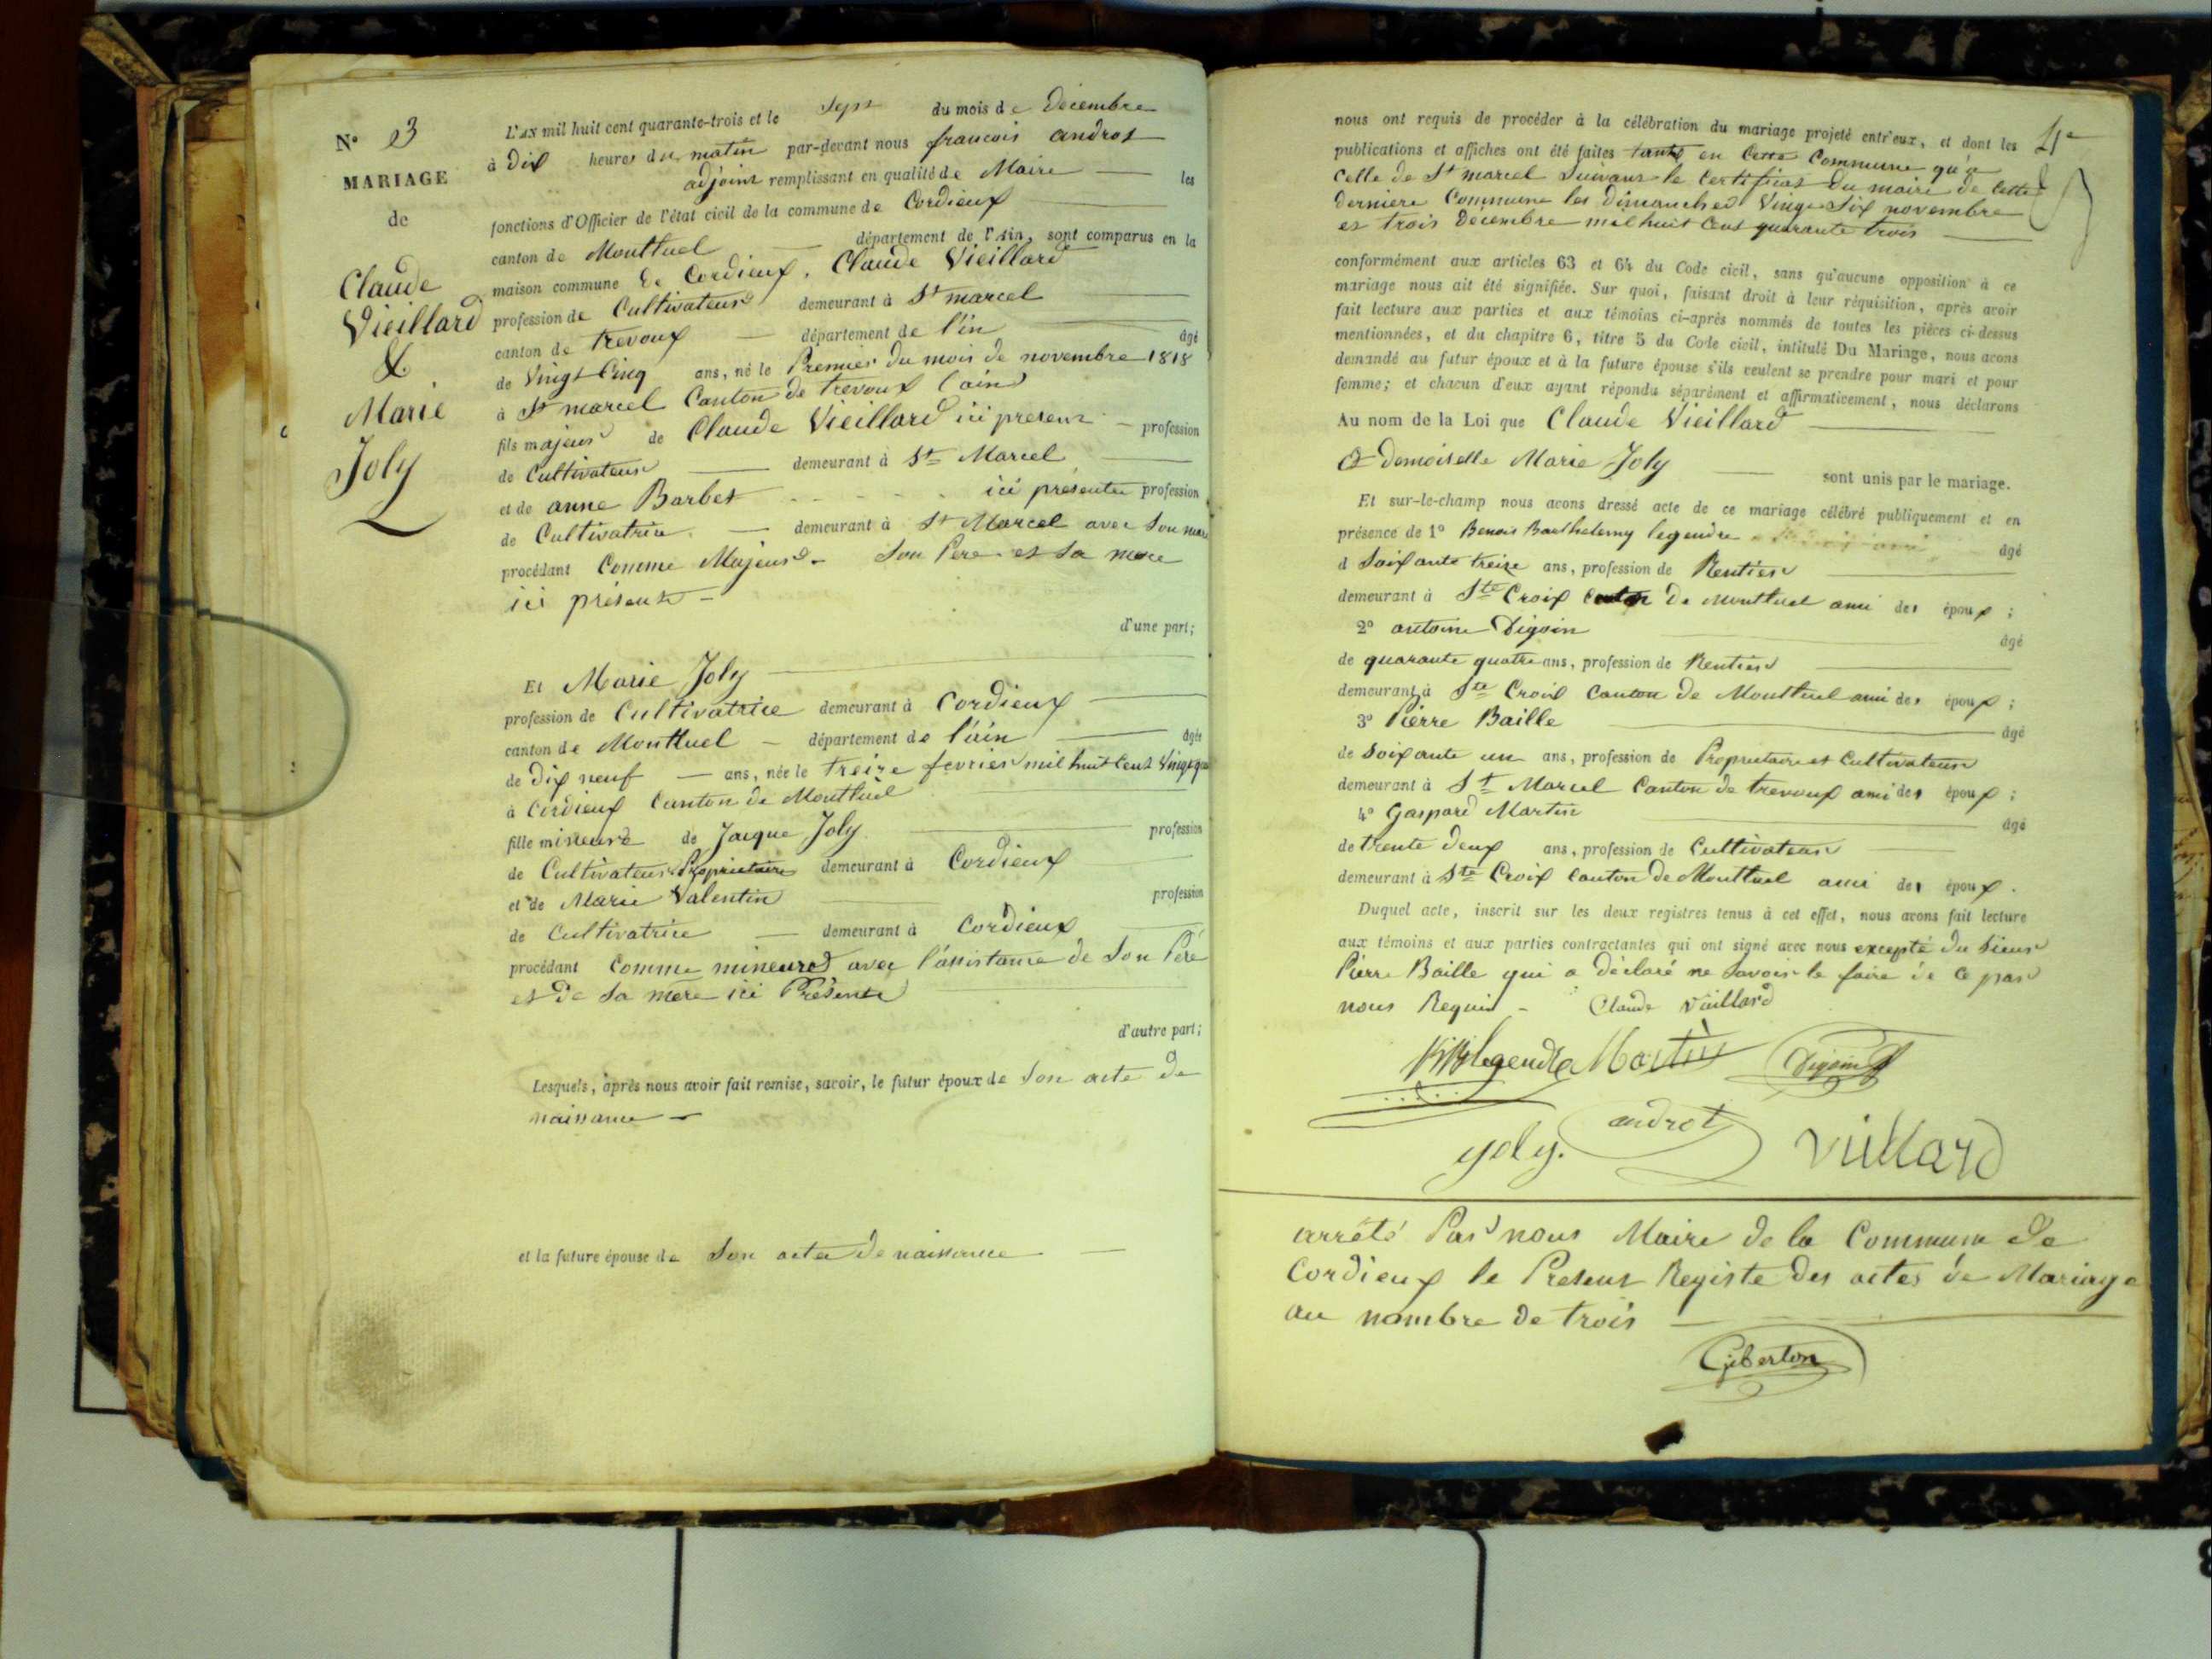 N° 3
MARIAGE
de
Claude
Vieillard
&
Marie
Joly
L'AN mil huit cent quarante-trois et le Sept du mois de Décembre
à Dix heures du matin par-devant nous francois androt
adjoint remplissant en qualité de Maire les
fonctions d'Officier de l'état civil de la commune de Cordieux
canton de Montluel département de l'Ain, sont comparus en la
maison commune de Cordieux, Claude Vieillard
profession de Cultivateur demeurant à St marcel
canton de trevoux département de l'in âgé
de Vingt Cinq ans, né le Premier du mois de novembre 1818
à St marcel Canton de trevoux l'ain
fils majeur de Claude Vieillard ici présent profession
de Cultivateur demeurant à St Marcel
et de anne Barbet ici présente profession
de Cultivatrice demeurant à St Marcel avec Son mari
procédant Comme Majeur. Son Pere et Sa mere
ici présents
d'une part;
Et Marie Joly
profession de Cultivatrice demeurant à Cordieux
canton de Montluel département de l'ain âgée
de Dix neuf ans, née le treize fevrier mil huit Cent Vingt
à Cordieux Canton de Montluel
fille mineure de Jacque Joly profession
de Cultivateur Proprietaire demeurant à Cordieux
et de Marie Valentin profession
de Cultivatrice demeurant à Cordieux
procédant Comme mineure avec l'assistance de Son Père
et De Sa mère ici Présente
d'autre part;
Lesquels, après nous avoir fait remise, savoir, le futur époux de Son acte De
naissance
et la future épouse de Son acte de naissance
nous ont requis de procéder à la célébration du mariage projeté entr'eux, et dont les
publications et affiches ont été faites tants en Cette Commune qu'a
Celle de St marcel Suivant le Certificat du maire de Cette
derniere Commune les Dimanches Vingt Six novembre
et trois Decembre mil huit Cent quarante trois
conformément aux articles 63 et 64 du Code civil, sans qu'aucune opposition à ce
mariage nous ait été signifiée. Sur quoi, faisant droit à leur réquisition, après avoir
fait lecture aux parties et aux témoins ci-après nommés de toutes les pièces ci-dessus
mentionnées, et du chapitre 6, titre 5 du Code civil, intitulé Du Mariage, nous avons
demandé au futur époux et à la future épouse s'ils veulent se prendre pour mari et pour
femme; et chacun d'eux ayant répondu séparément et affirmativement, nous déclarons
Au nom de la Loi que Claude Vieillard
& Demoiselle Marie Joly sont unis par le mariage.
Et sur-le-champ nous avons dressé acte de ce mariage célébré publiquement et en
présence de 1° Benoit Barthelemy legendre âgé
d Soixante treize ans, profession de Rentier
demeurant à Ste Croix De Montluel ami des époux;
2° antoine Digoin âgé
de quarante quatre ans, profession de Rentier
demeurant à Ste Croix Canton de Montluel ami des époux;
3° Pierre Baille âgé
de Soixante un ans, profession de Proprietaire et Cultivateur
demeurant à St Marcel Canton de trevoux ami des époux;
4° Gaspard Martin âgé
de trente Deux ans, profession de Cultivateur
demeurant à Ste Croix Canton De Montluel ami des époux.
Duquel acte, inscrit sur les deux registres tenus à cet effet, nous avons fait lecture
aux témoins et aux parties contractantes qui ont signé avec nous excepté du Sieur
Pierre Baille qui a déclaré ne Savoir le faire de Ce par
nous Requis - Claude Vieillard
BBlegendre Martin Digoin
androt
yoly. Viellard
arrêté Par nous Maire de la Commune de
Cordieux le Present Registe Des actes de Mariage
au nombre de trois
Giberton